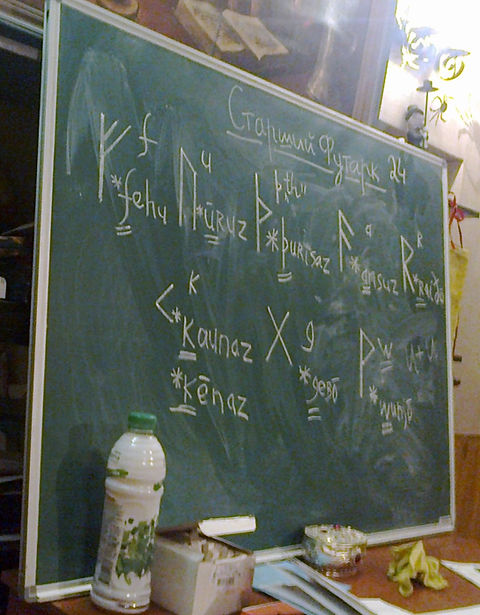 Старший Футарк 24
ᚠ f *fehu
ᚢ u *ūruz
ᚦ þ, th *þurisaz
ᚨ a *ansuz
ᚱ R *raiđo
ᚲ K *Kaunaz
*Kēnaz
ᚷ g *gebō
ᚹ w *wunjō